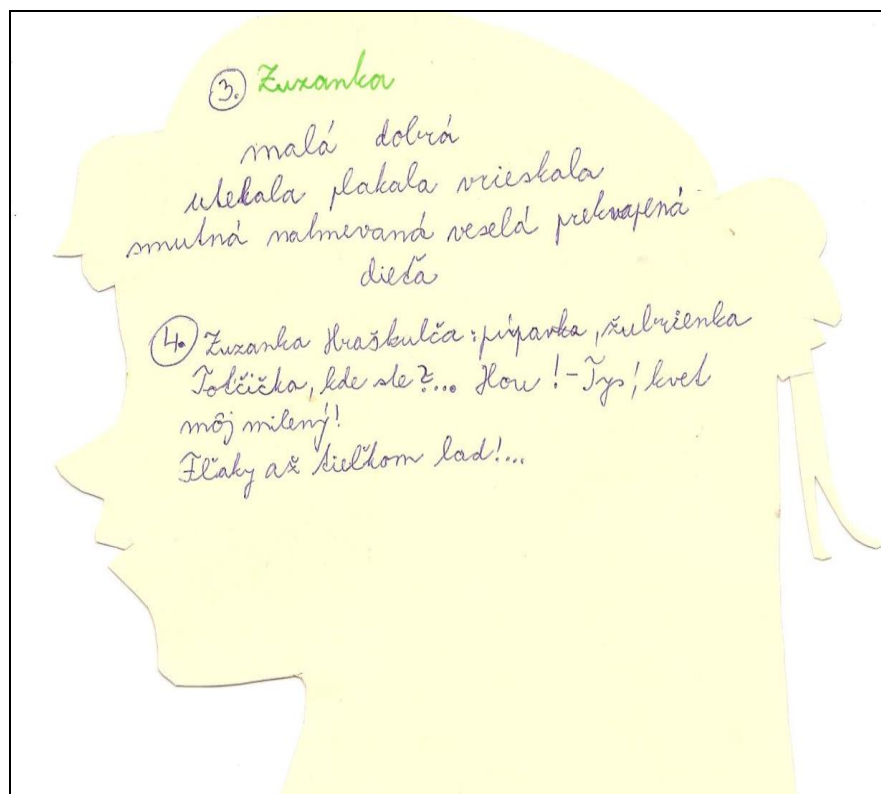 3. Zuzanka
malá dobrá
utekala plakala vrieskala
smutná nahnevaná veselá prekvapená
dieťa
4. Zuzanka Hraškulča: pípavka, žubrienka
Totčička, kde ste?... Hou! - Tys, kvet
môj milený!
Fľaky až tielkom lad!...